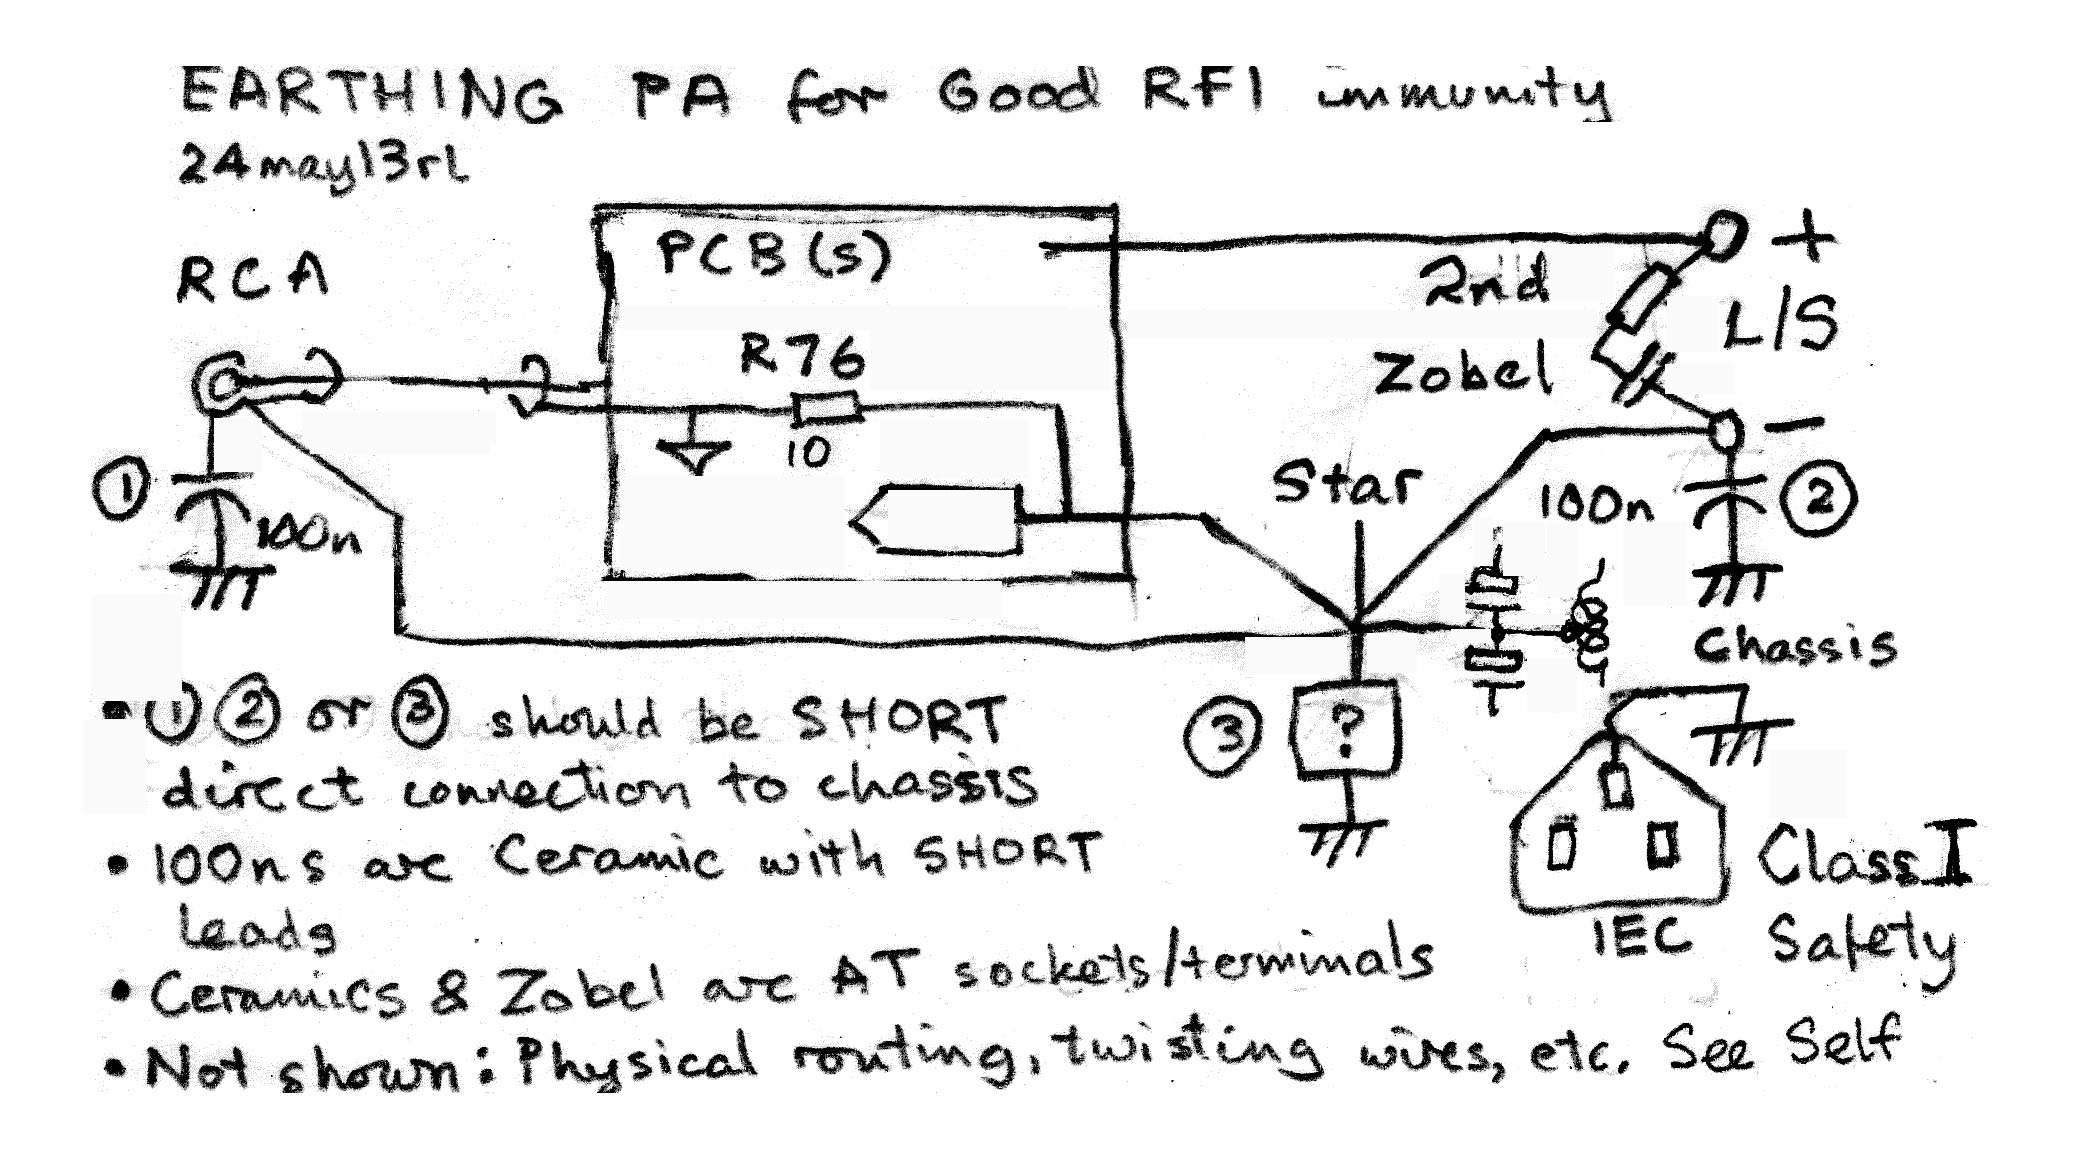 EARTHING PA for Good RFI immunity
24may13rL
RCA
PCB(s)
+
2nd
Zobel
L/S
R76
10
-
Star
① 100n
100n ②
Chassis
③ ?
- ① ② or ③ should be SHORT
direct connection to chassis
• 100ns are Ceramic with SHORT
leads
IEC
Class I
Safety
• Ceramics & Zobel are AT sockets/terminals
• Not shown: Physical routing, twisting wires, etc. See Self